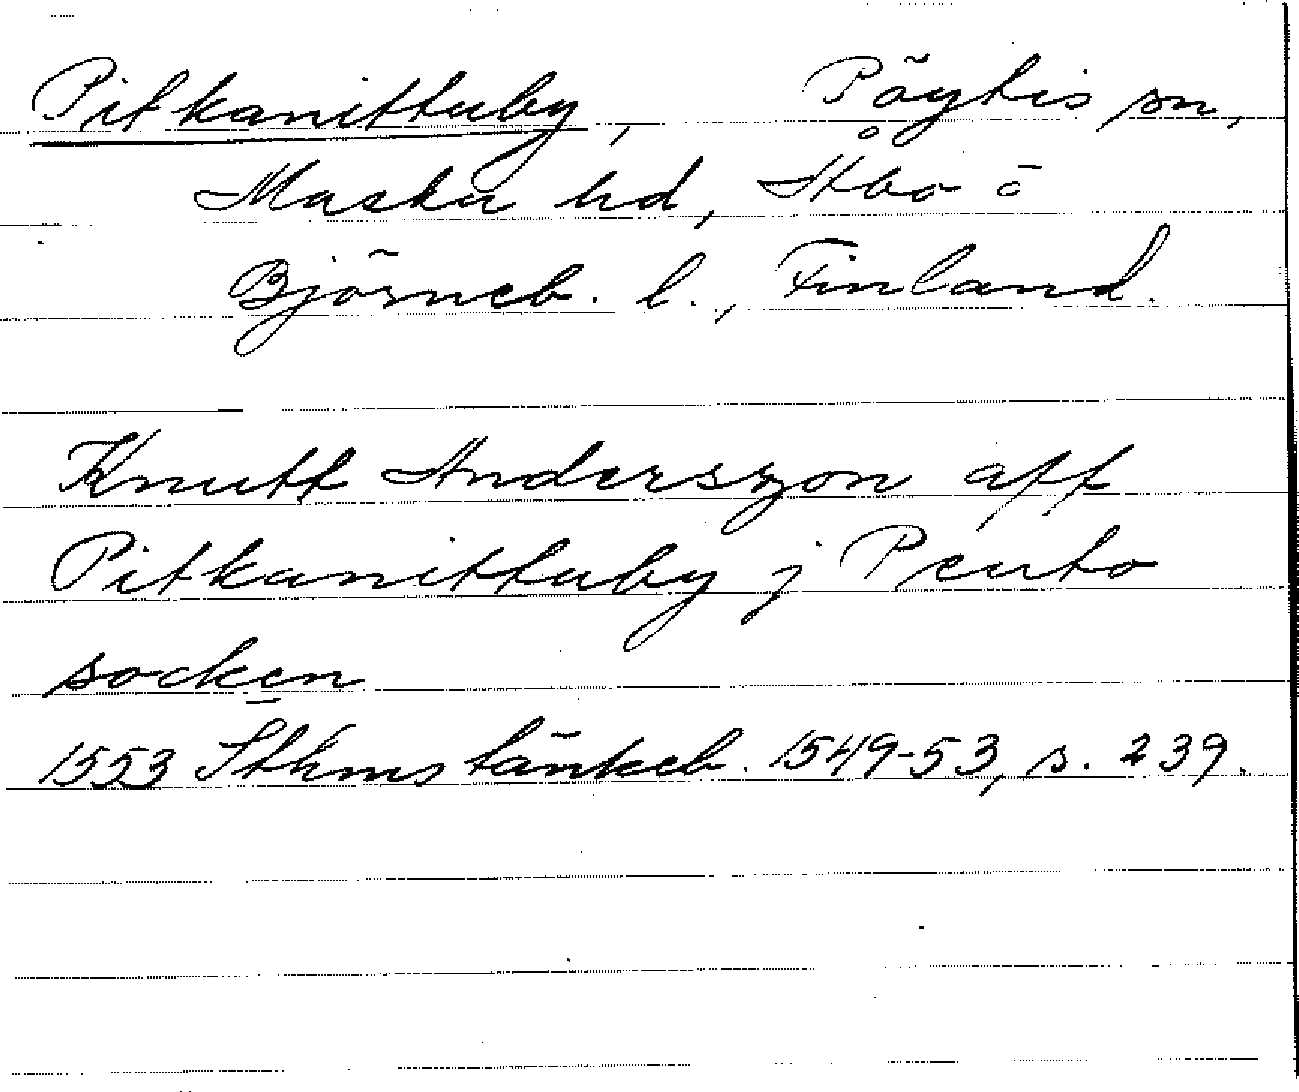 Pitkanittuby, Pöytis sn,
Masku hd, Åbo ō
Björneb. l., Finland.
Knutt Anderszon aff
Pitkanittuby j Peuto
socken
1553 Sthms tänkeb. 1549-53, s. 239.